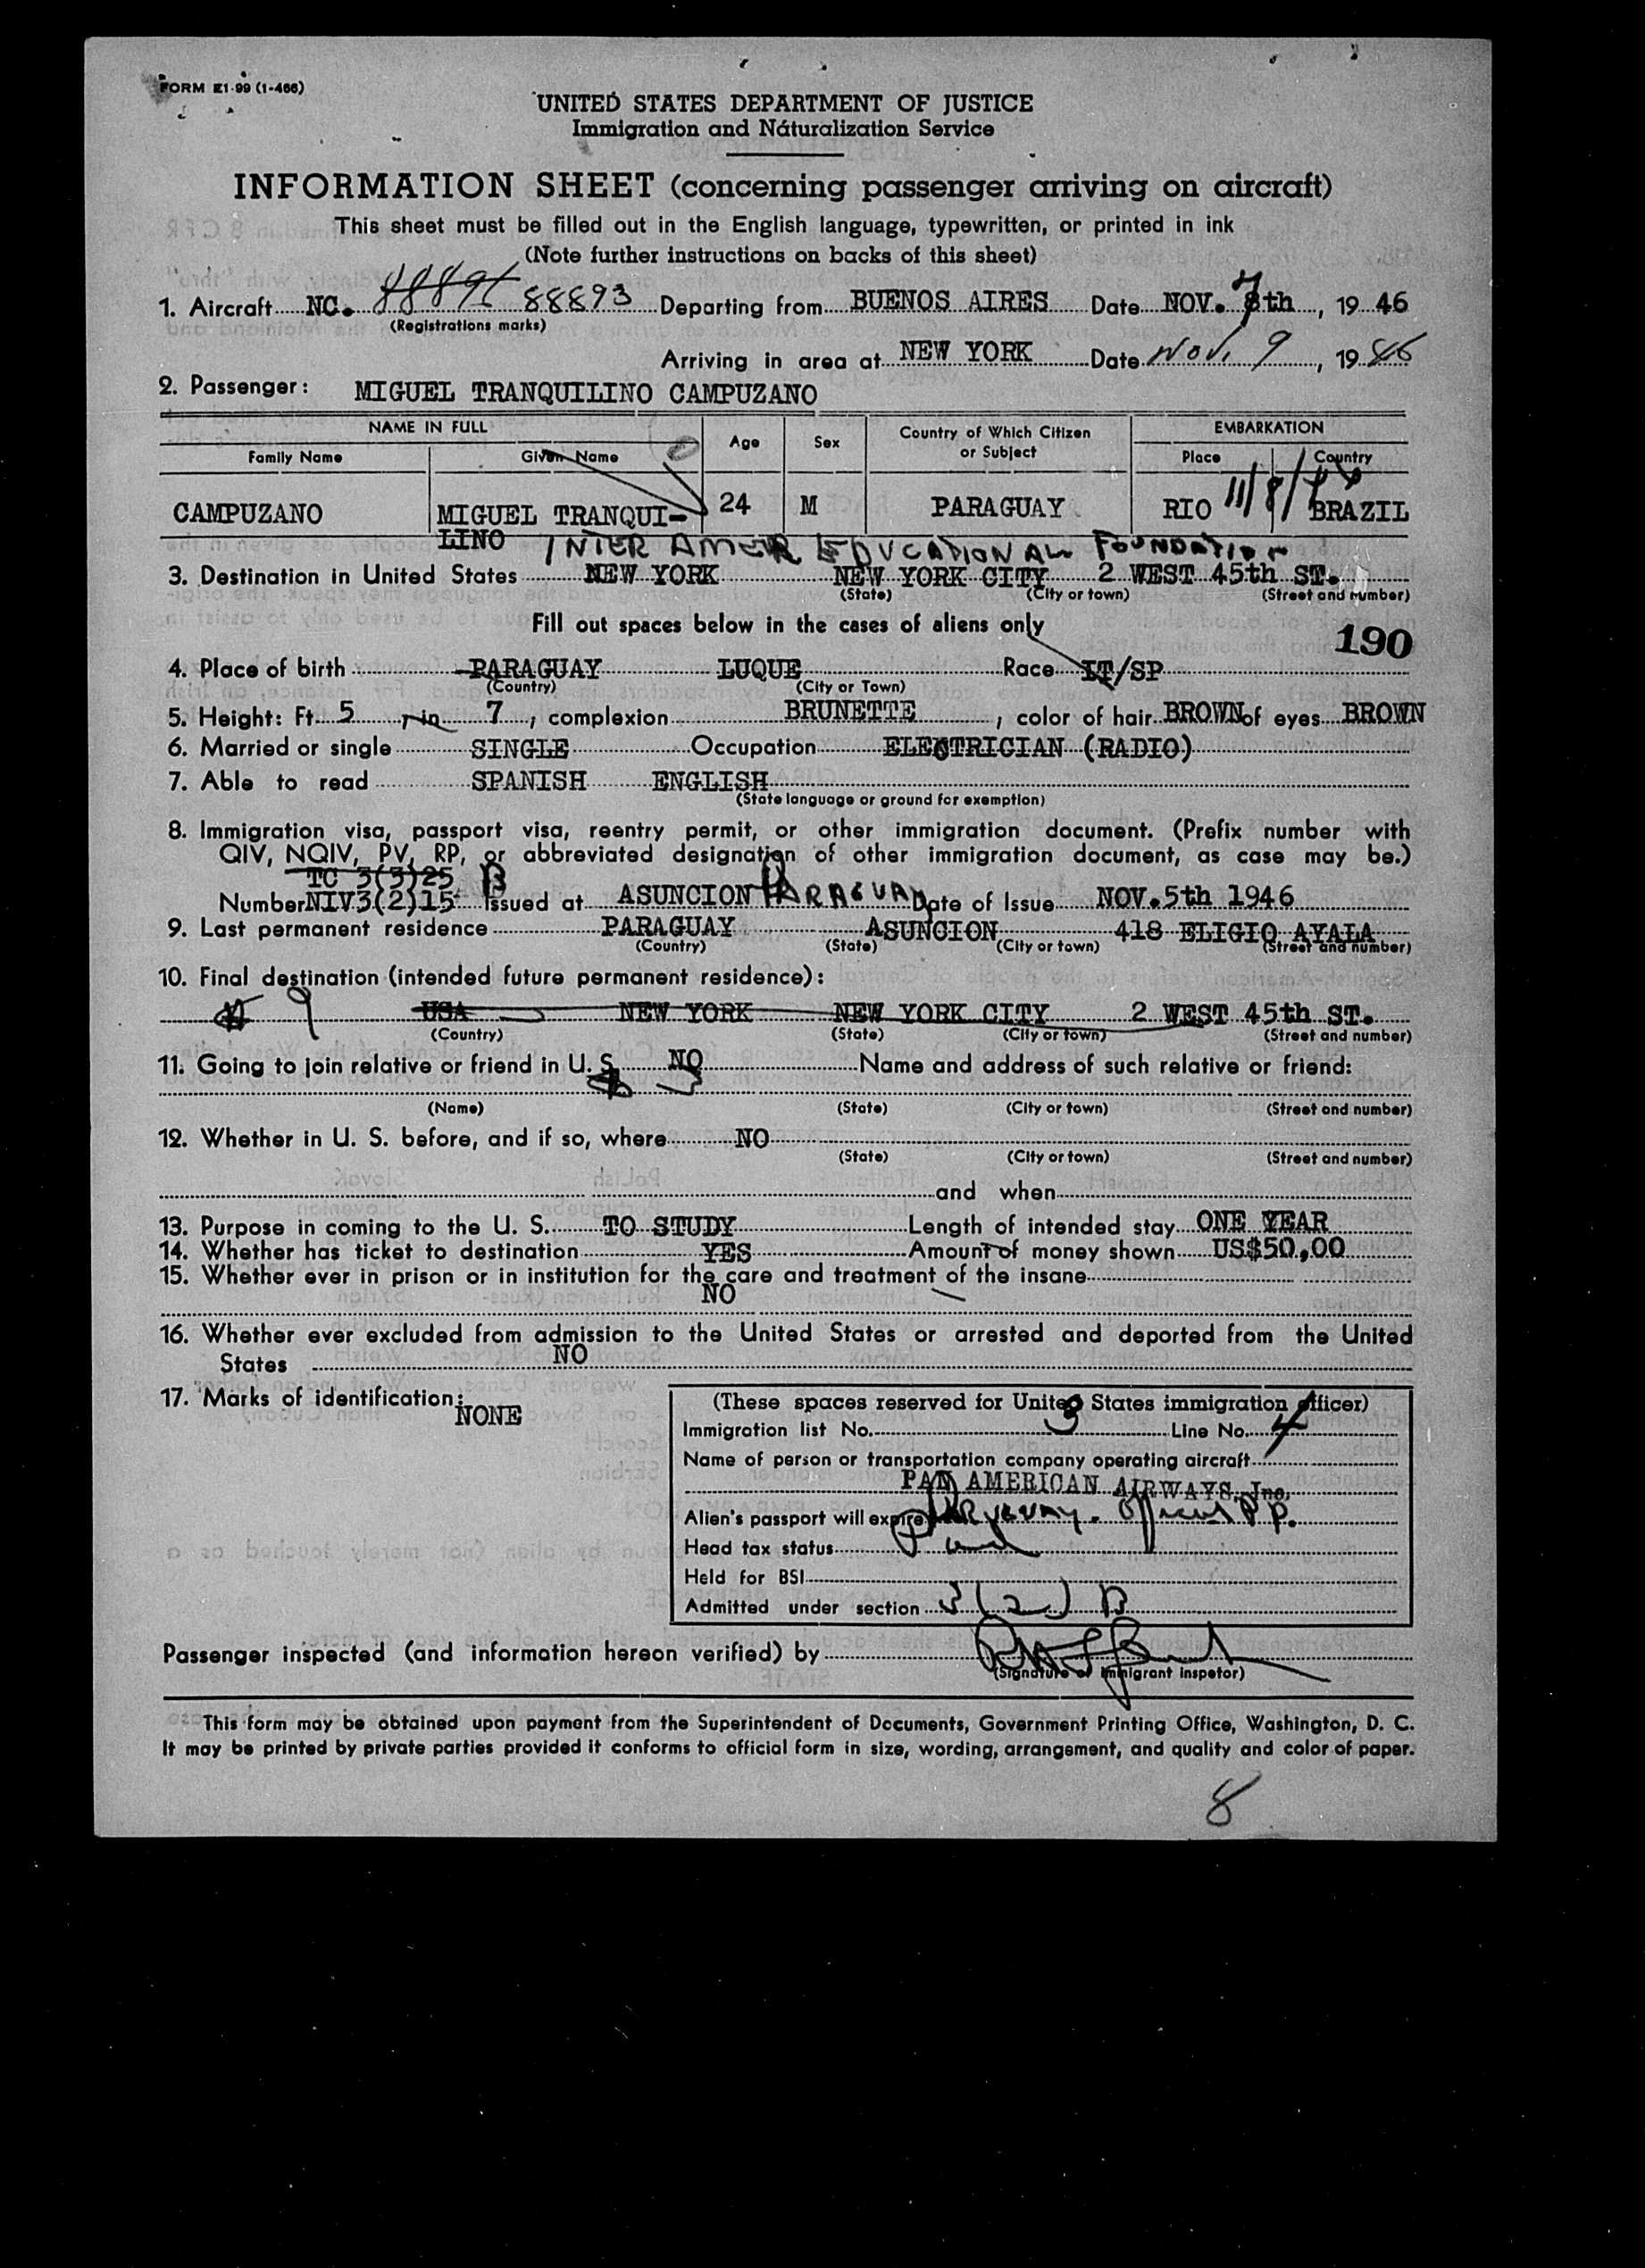 FORM E1-99 (1-466)
UNITED STATES DEPARTMENT OF JUSTICE
Immigration and Naturalization Service
INFORMATION SHEET (concerning passenger arriving on aircraft)
This sheet must be filled out in the English language, typewritten, or printed in ink
(Note further instructions on backs of this sheet)
1. Aircraft NC. 88893 Departing from BUENOS AIRES Date NOV. 7th, 19 46
(Registrations marks)
Arriving in area at NEW YORK Date Nov. 9, 19 46
2. Passenger: MIGUEL TRANQUILINO CAMPUZANO
NAME IN FULL Age Sex Country of Which Citizen or Subject EMBARKATION
Family Name Given Name Place Country
CAMPUZANO MIGUEL TRANQUI- 24 M PARAGUAY RIO 11/8/ BRAZIL
LINO INTER AMER EDUCATIONAL FOUNDATION
3. Destination in United States NEW YORK NEW YORK CITY 2 WEST 45th ST.
(State) (City or town) (Street and number)
Fill out spaces below in the cases of aliens only
190
4. Place of birth PARAGUAY LUQUE Race IT/SP
(Country) (City or Town)
5. Height: Ft. 5, in 7, complexion BRUNETTE, color of hair BROWN of eyes BROWN
6. Married or single SINGLE Occupation ELECTRICIAN (RADIO)
7. Able to read SPANISH ENGLISH
(State language or ground for exemption)
8. Immigration visa, passport visa, reentry permit, or other immigration document. (Prefix number with
QIV, NQIV, PV, RP, or abbreviated designation of other immigration document, as case may be.)
TC 3(3)25 B
Number NIV3(2)15 Issued at ASUNCION PARAGUAY Date of Issue NOV. 5th 1946
9. Last permanent residence PARAGUAY ASUNCION 418 ELIGIO AYALA
(Country) (State) (City or town) (Street and number)
10. Final destination (intended future permanent residence):
USA NEW YORK NEW YORK CITY 2 WEST 45th ST.
(Country) (State) (City or town) (Street and number)
11. Going to join relative or friend in U. S. NO Name and address of such relative or friend:
(Name) (State) (City or town) (Street and number)
12. Whether in U. S. before, and if so, where NO
(State) (City or town) (Street and number)
and when
13. Purpose in coming to the U. S. TO STUDY Length of intended stay ONE YEAR
14. Whether has ticket to destination YES Amount of money shown US$50,00
15. Whether ever in prison or in institution for the care and treatment of the insane
NO
16. Whether ever excluded from admission to the United States or arrested and deported from the United
States NO
17. Marks of identification: NONE
(These spaces reserved for United States immigration officer)
Immigration list No. 3 Line No. 4
Name of person or transportation company operating aircraft
PAN AMERICAN AIRWAYS, Inc.
Alien's passport will expire Paraguay. Official P.P.
Head tax status
Held for BSI
Admitted under section 3(2) B
Passenger inspected (and information hereon verified) by
(Signature of Immigrant Inspetor)
This form may be obtained upon payment from the Superintendent of Documents, Government Printing Office, Washington, D. C.
It may be printed by private parties provided it conforms to official form in size, wording, arrangement, and quality and color of paper.
8